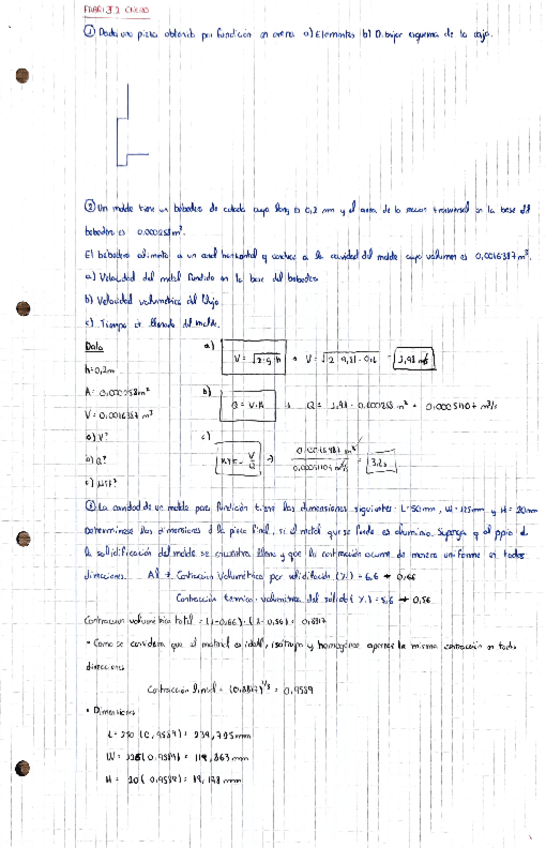 ① Dada una pieza obtenida por fundición en arena a) Elementos b) Dibujar esquema de la caja.
② Un molde tiene un bebedero de colada cuyo long es 0,2 mm y el area de la seccion transversal en la base del
bebedero es 0.000258m².
El bebedero alimenta a un canal horizontal y conduce a la cavidad del molde cuyo volumen es 0,0016387 m³.
a) Velocidad del metal fundido en la base del bebedero
b) Velocidad volumetrica del flujo.
c) Tiempo de llenado del molde.
Dato
h=0,2m
A= 0,000258m²
V= 0,0016387 m³
a) V?
b) Q?
c) MTF?
a) V = √2·g·h V= √2·9,81·0,2 = 1,98 m/s
b) Q = V·A Q= 1,98 · 0,000258 m² = 0,0005110 m³/s
c) MTF = V/Q → 0,0016387 m³ / = 3,2s
③ La cavidad de un molde para fundición tiene las dimensiones siguientes: L=250mm, W=125mm y H= 20mm
Determinese las dimensiones de la pieza final, si el metal que se funde es aluminio. Suponga q al ppio de
la solidificación del molde se encuentra lleno y que la contracción ocurre de manera uniforme en todas
direcciones. Al → Contraccion Volumétrica por solidificación (%) = 6.6 → 0,66
Contracción termica volumetrica del sólido (%) = 5,6 → 0,56
Contraccion volumétrica total = (1-0,66)·(1-0,56) = 0,8817
• Como se considera que el material es ideal, isótropo y homogéneo aparece la misma contracción en todas
direcciones
Contracción lineal = (0,8817)^1/3 = 0,9589
• Dimensiones
L= 250 (0,9589) = 239,725mm
W= 125(0,9589) = 119,863mm
H= 20(0,9589) = 19,178 mm